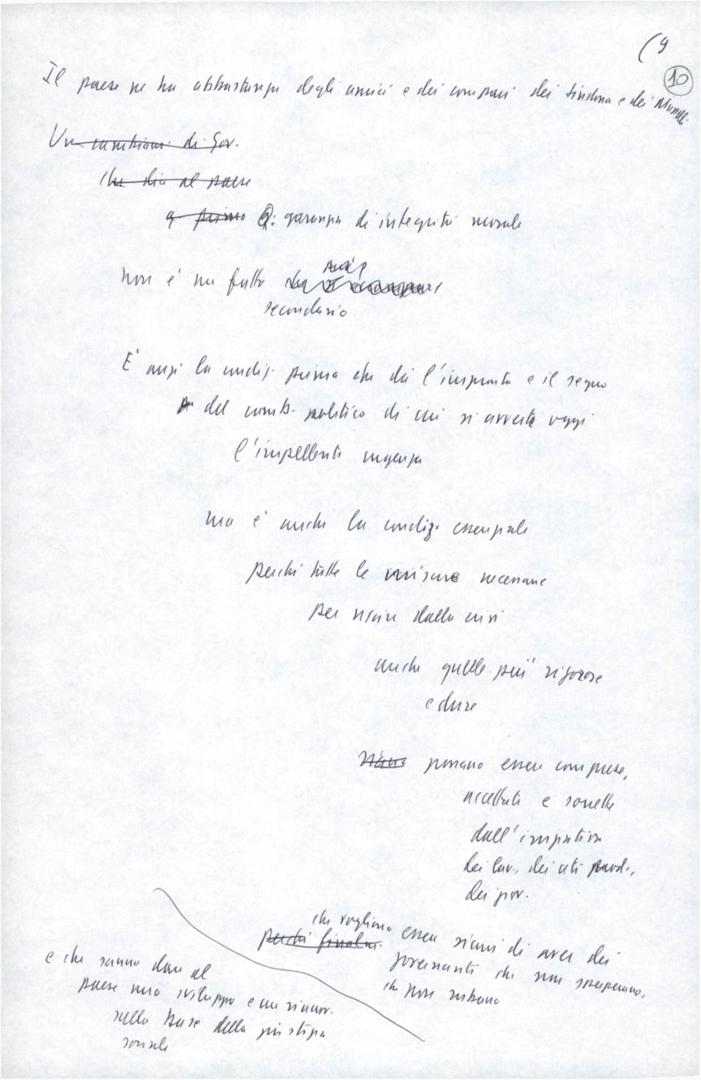 (9
10
Il paese ne ha abbastanza degli amici e dei compari dei Sindona e dei
Un cambiam. di Gov.
che dia al paese
Q: garanzia di integrità morale
non è un fatto
secondario
È anzi la condiz. prima che dà l'impronta e il segno
del camb. politico di cui si avverte oggi
l'impellente urgenza
ma è anche la condiz. essenziale
perché tutte le misure necessarie
per uscire dalla crisi
anche quelle più rigorose
e dure
siano possano essere comprese,
accettate e sorrette
dall'iniziativa
dei lav., dei ceti produt.,
dei giov.
che vogliono essere sicuri di aver dei
perché finalm.
governanti che non sperperano,
che non rubano
e che sanno dare al
paese uno sviluppo e un rinnov.
sulla base della giustizia
sociale